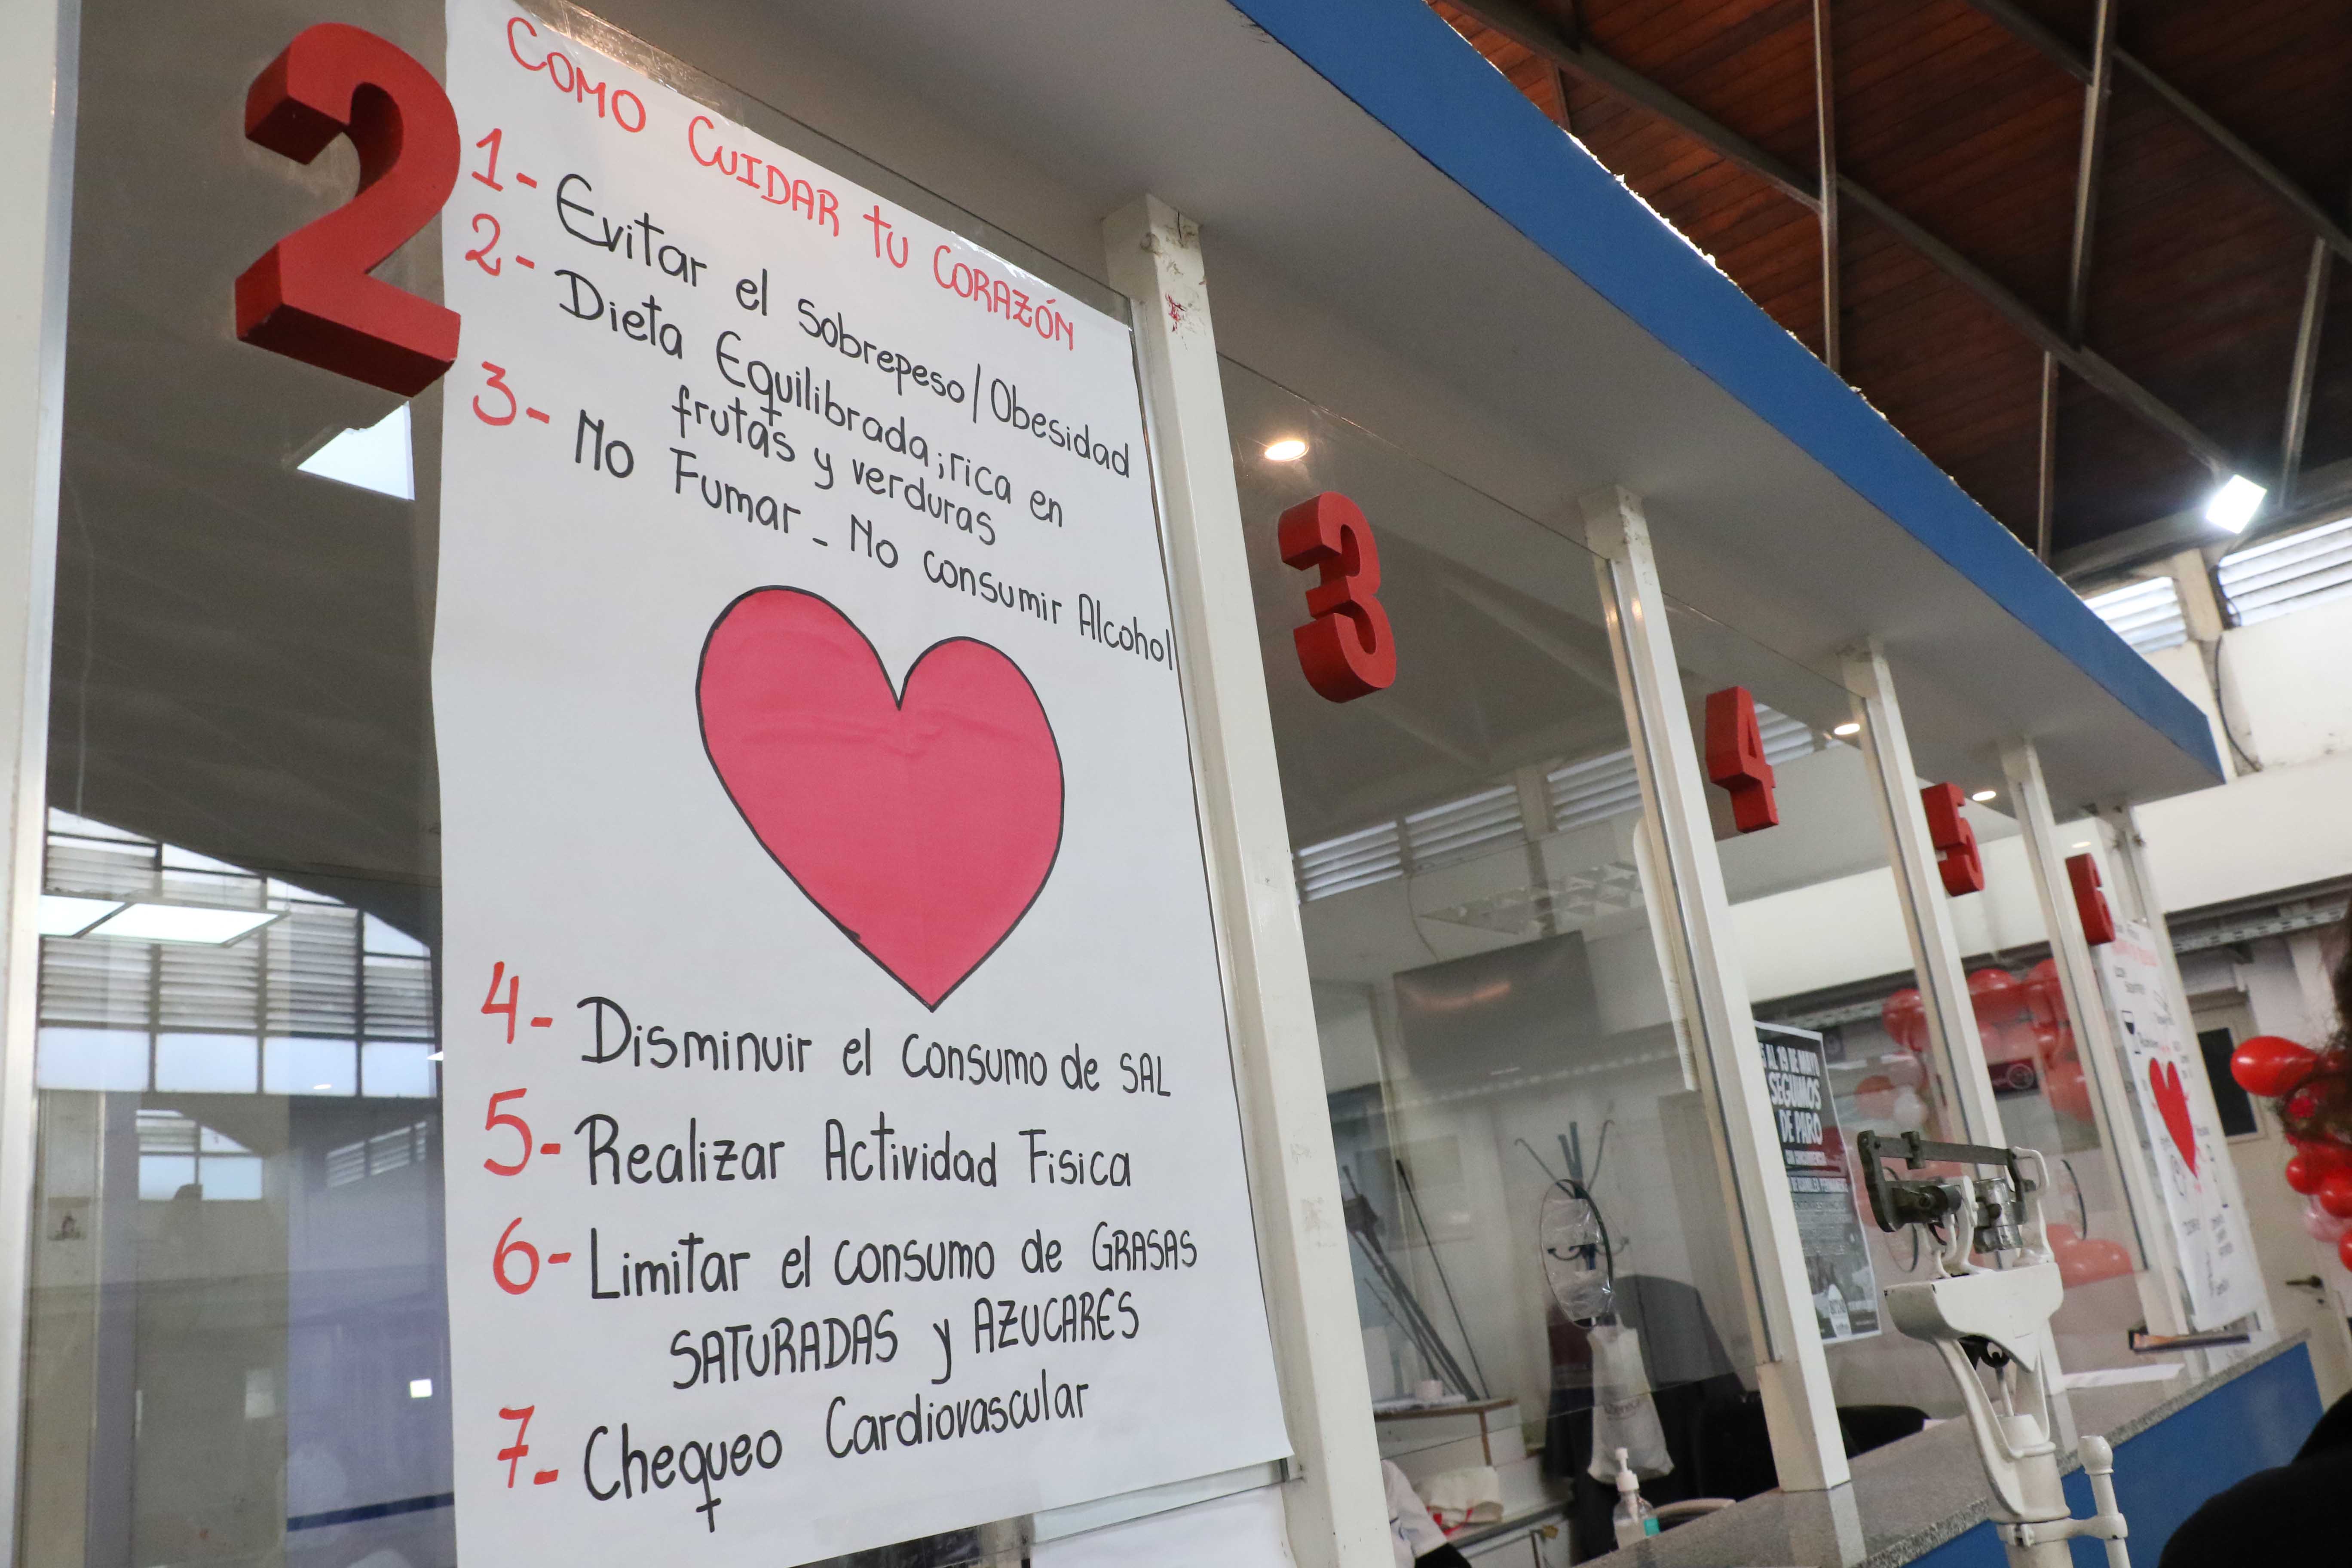 2
COMO CUIDAR tU CORAZÓN
1- Evitar el sobrepeso/Obesidad
2- Dieta Equilibrada; rica en
frutas y verduras
3- No Fumar - No consumir Alcohol
4- Disminuir el consumo de SAL
5- Realizar Actividad Fisica
6- Limitar el consumo de GRASAS
SATURADAS y AZUCARES
7- Chequeo Cardiovascular
3
4
5
6
AL 19 DE MAYO
SEGUIMOS
DE PARO